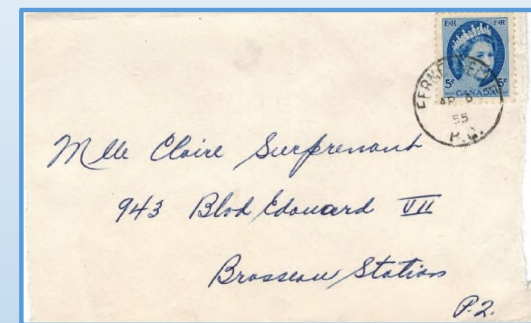 E II R E II R
5¢ 5¢
CANADA
AP 6
55
P.Q.
Mlle Claire Surprenant
943 Blvd Edouard VII
Brosseau Station
P.Q.